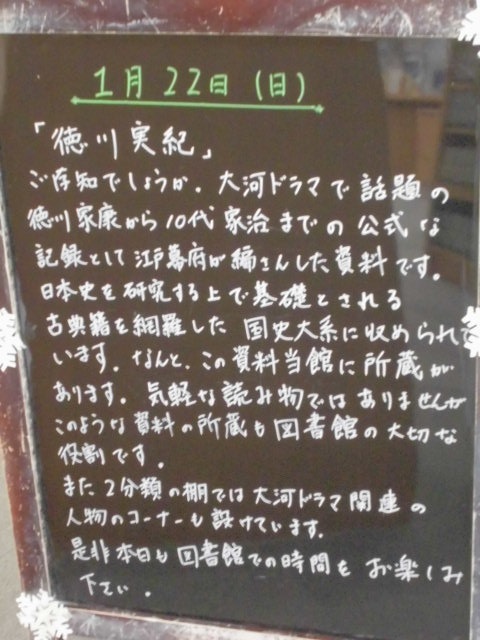 1月22日(日)
「徳川実紀」
ご存知でしょうか。大河ドラマで話題の
徳川家康から10代家治までの公式な
記録として江戸幕府が編さんした資料です。
日本史を研究する上で基礎とされる
古典籍を網羅した国史大系に収められて
います。なんと、この資料当館に所蔵が
あります。気軽な読み物ではありませんが
このような資料の所蔵も図書館の大切な
役割です。
また2分類の棚では大河ドラマ関連の
人物のコーナーも設けています。
是非本日も図書館での時間をお楽しみ
下さい。